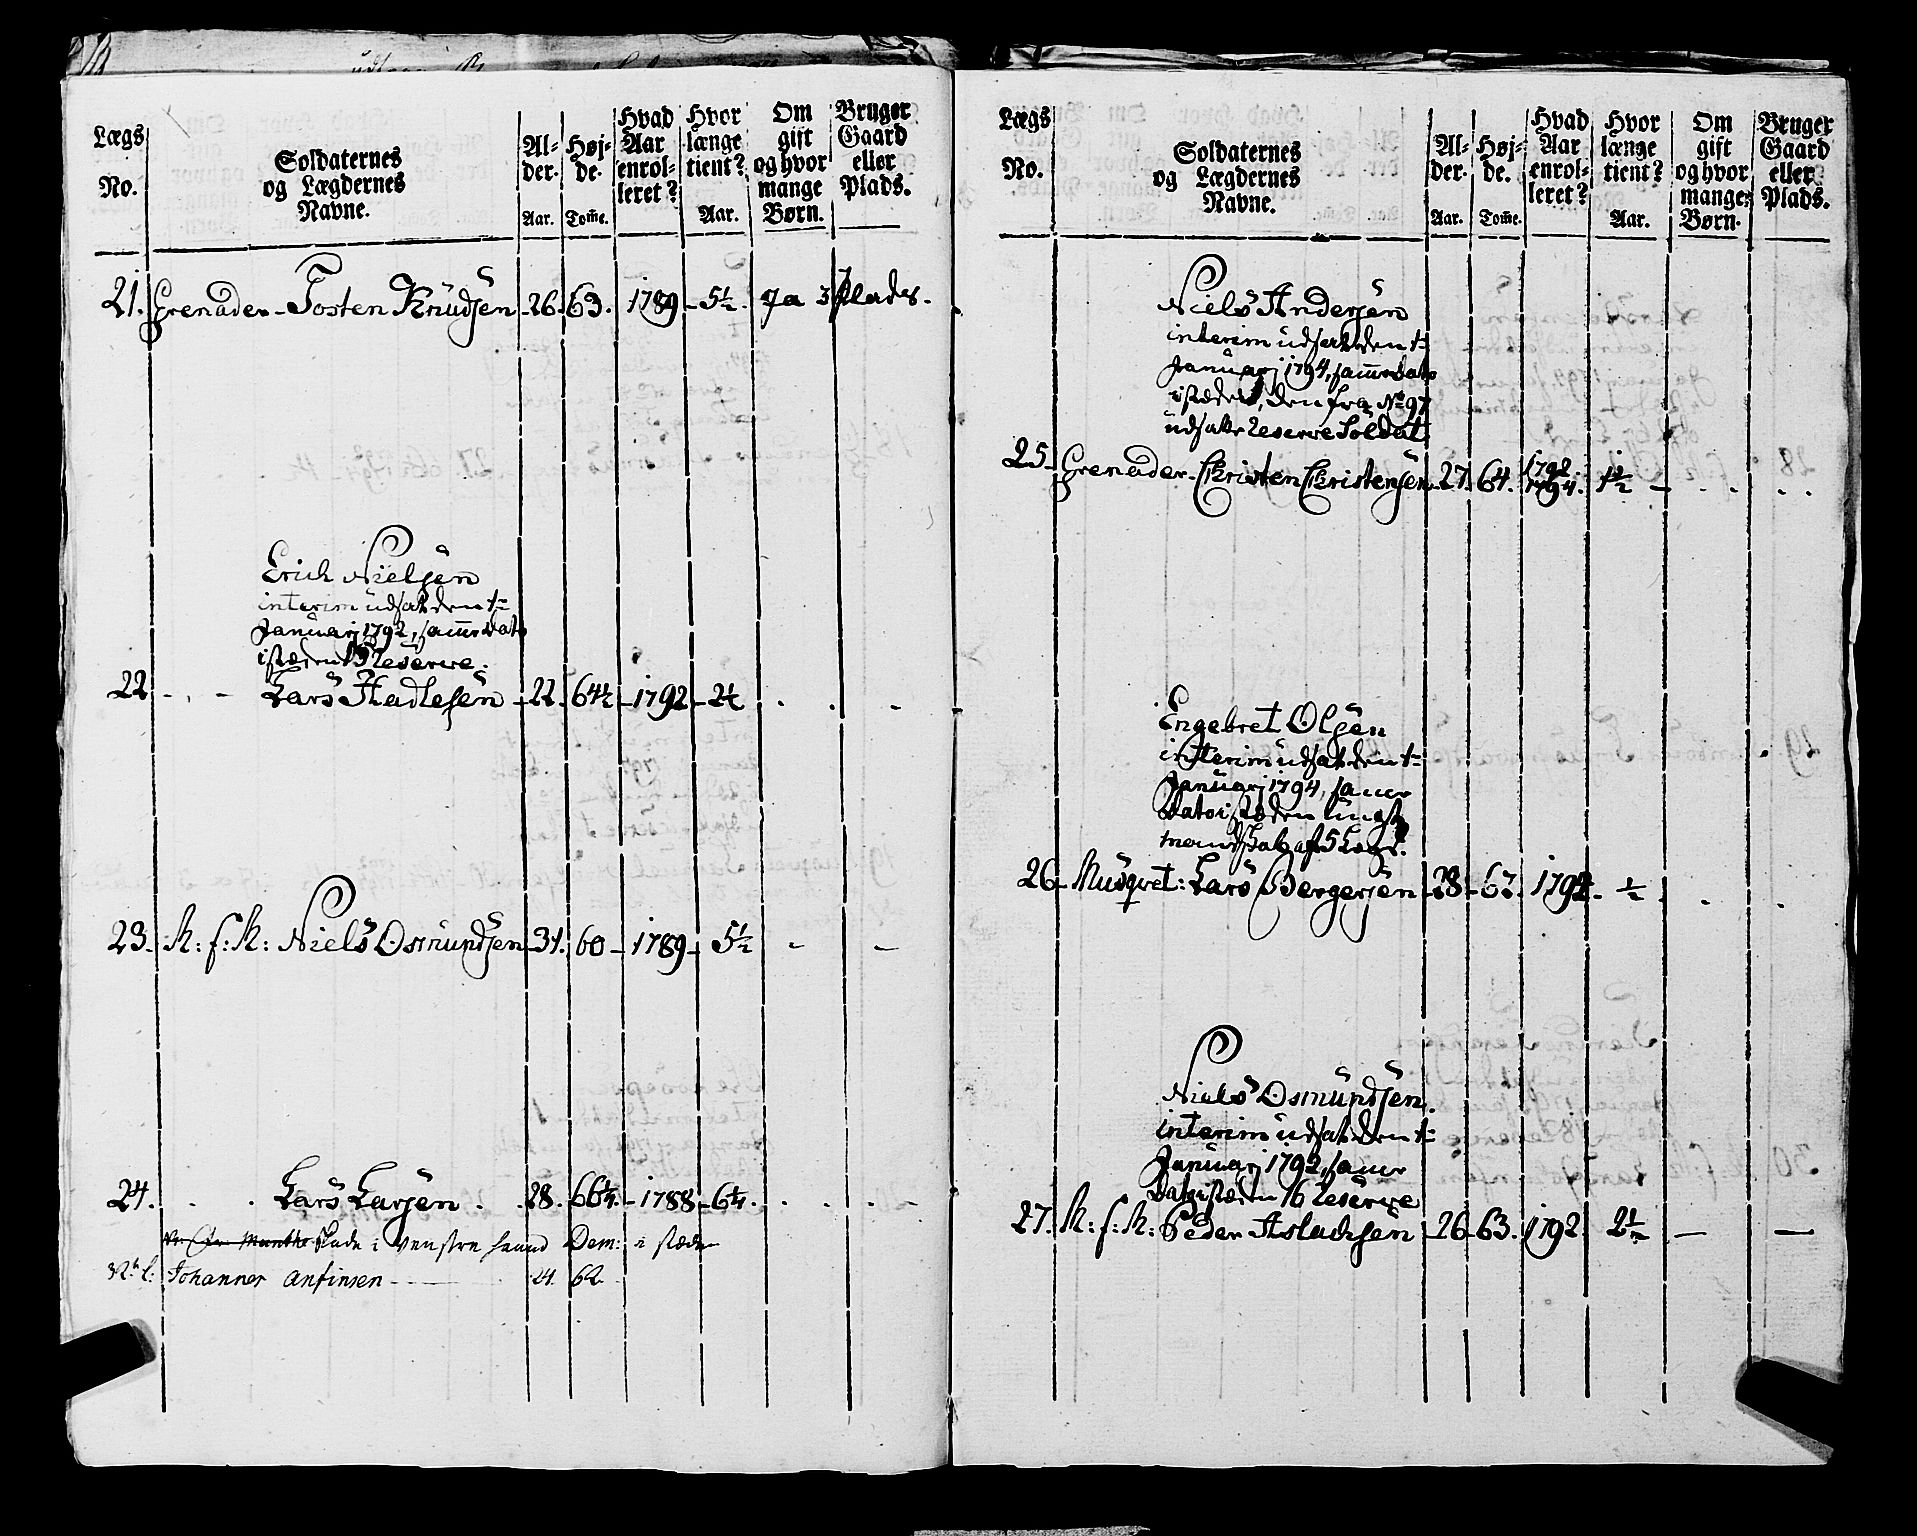 Lægs No. Soldaternes og Lægdernes Navne. Alder. Aar. Højde. Tom̃e. Hvad Aar enrolleret? Hvor længe tient? Aar. Om gift og hvor mange Børn. Bruger Gaard eller Plads.
21. Grenader - Tosten Knudsen - 26. 63. 1789 - 5½. Ja 3 Plads.
Erich Nielsen
interim udsat den 1=
Januarj 1792, samme dato
isteden 15 Reserve.
22 - - Lars Hadlesen - 22. 64½ - 1792 - 2½
23. R: f: R: Niels Osmundsen - 31. 60 - 1789 - 5½ - -
24. Lars Larsen 28. 66¼. - 1788 - 6½.
skade i venstre haand Dem: i stæden
Johannes Anfinsen - 24. 62
Lægs No. Soldaternes og Lægdernes Navne. Alder. Aar. Højde. Tom̃e. Hvad Aar enrolleret? Hvor længe tient? Aar. Om gift og hvor mange Børn. Bruger Gaard eller Plads.
Niels Andersen
interim udsat den 1=
Januarj 1794, samme dato
isteden, den fra No 97
udsatte Reserve Soldat
25 - Grenader - Christen Christensen - 27. 64. 1792. 1794. 1½ -
Engebret Olsen
interim udsat den 1=
Januarj 1794, samme
dato isteden
26 - Musqvet: Lars Bergersen - 28 - 63. 1794 - ½
Niels Osmundsen.
interim udsat den 1=
Januarj 1792, samme
Dato isteden 16 Reserve
27. R: f: R: Peder Aslachsen - 26 - 63. 1792. 2½ - -